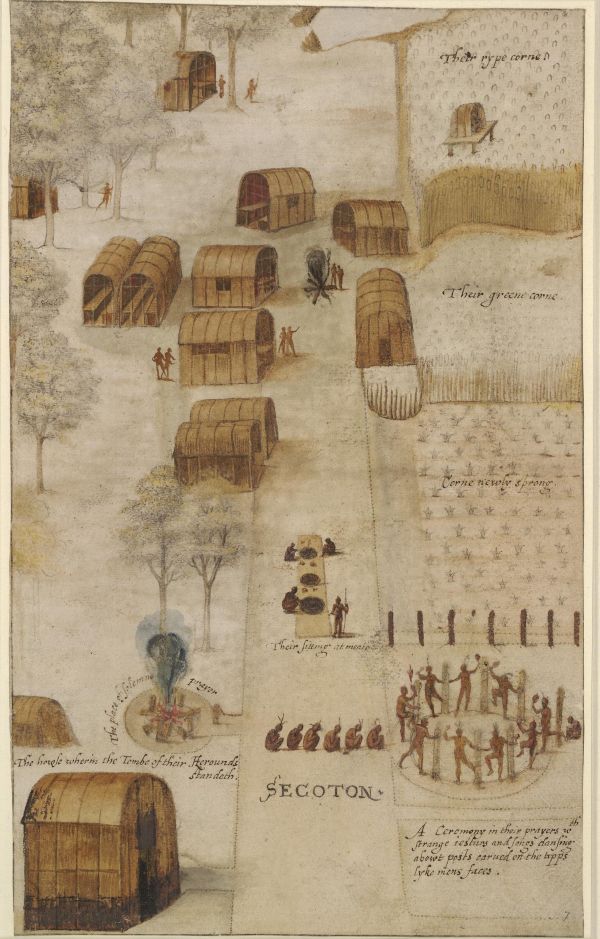 Their rype corne.
Their greene corne
Corne newly sprong.
Their sitting at meate
The place of solemne prayer
The howse wherin the Tombe of their Herounds
standeth.
SECOTON.
A Ceremony in their prayers wth
strange iesturs and songs dansing
abowt posts carued on the topps
lyke mens faces.
7